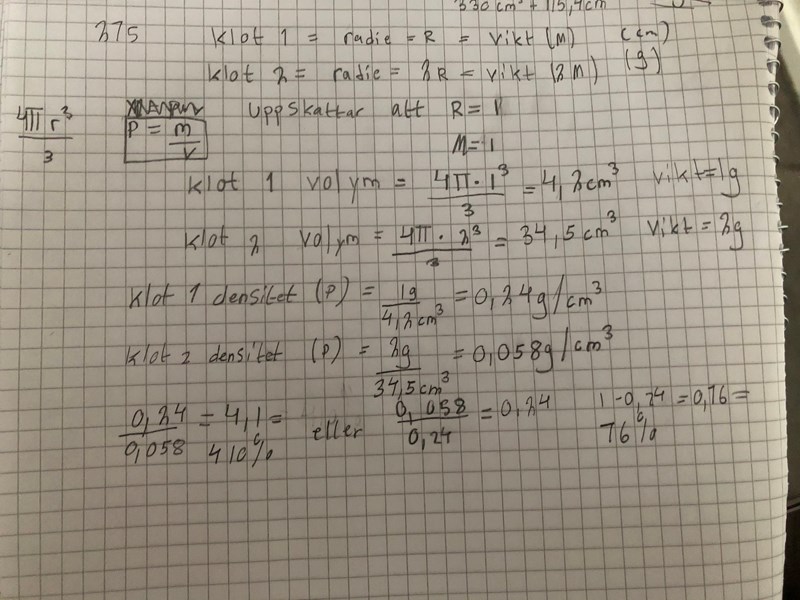 330 cm² + 115,4 cm
375 Klot 1 = radie = R = vikt (M) (cm)
Klot 2 = radie = 2R = vikt (2M) (g)
4πr³/3 P = m/v Uppskattar att R = 1
M = 1
Klot 1 volym = 4π·1³/3 = 4,2cm³ vikt=1g
Klot 2 volym = 4π·2³/3 = 34,5cm³ vikt = 2g
Klot 1 densitet (P) = 1g/4,2cm³ = 0,24g/cm³
Klot 2 densitet (P) = 2g/34,5cm³ = 0,058g/cm³
0,24/0,058 = 4,1 = 410% eller 0,058/0,24 = 0,24 1-0,24 = 0,76 =
76%